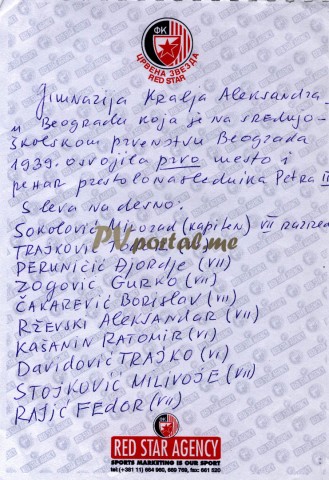 ФК
ЦРВЕНА ЗВЕЗДА
RED STAR
Gimnazija Kralja Aleksandra
u Beogradu koja je na srednjo-
školskom prvenstvu Beograda
1939. osvojila prvo mesto i
pehar prestolonaslednika Petra II
S leva na desno:
Sokolović Milovan (kapiten) VII razred
TRAJKOVIĆ
PERUNIČIĆ Djordje (VII)
Zogović GURKO (VII)
ČAKAREVIĆ Borislav (VII)
RŽEVSKI Aleksandar (VII)
KAŠANIN RATOMIR (VI)
Davidović TRAJKO (VI)
STOJKOVIĆ MILIVOJE (VII)
RAJIĆ FEDOR (VII)
PVportal.me
RED STAR AGENCY
SPORTS MARKETING IS OUR SPORT
tel (+381 11) 664 960, 669 769, fax: 661 520